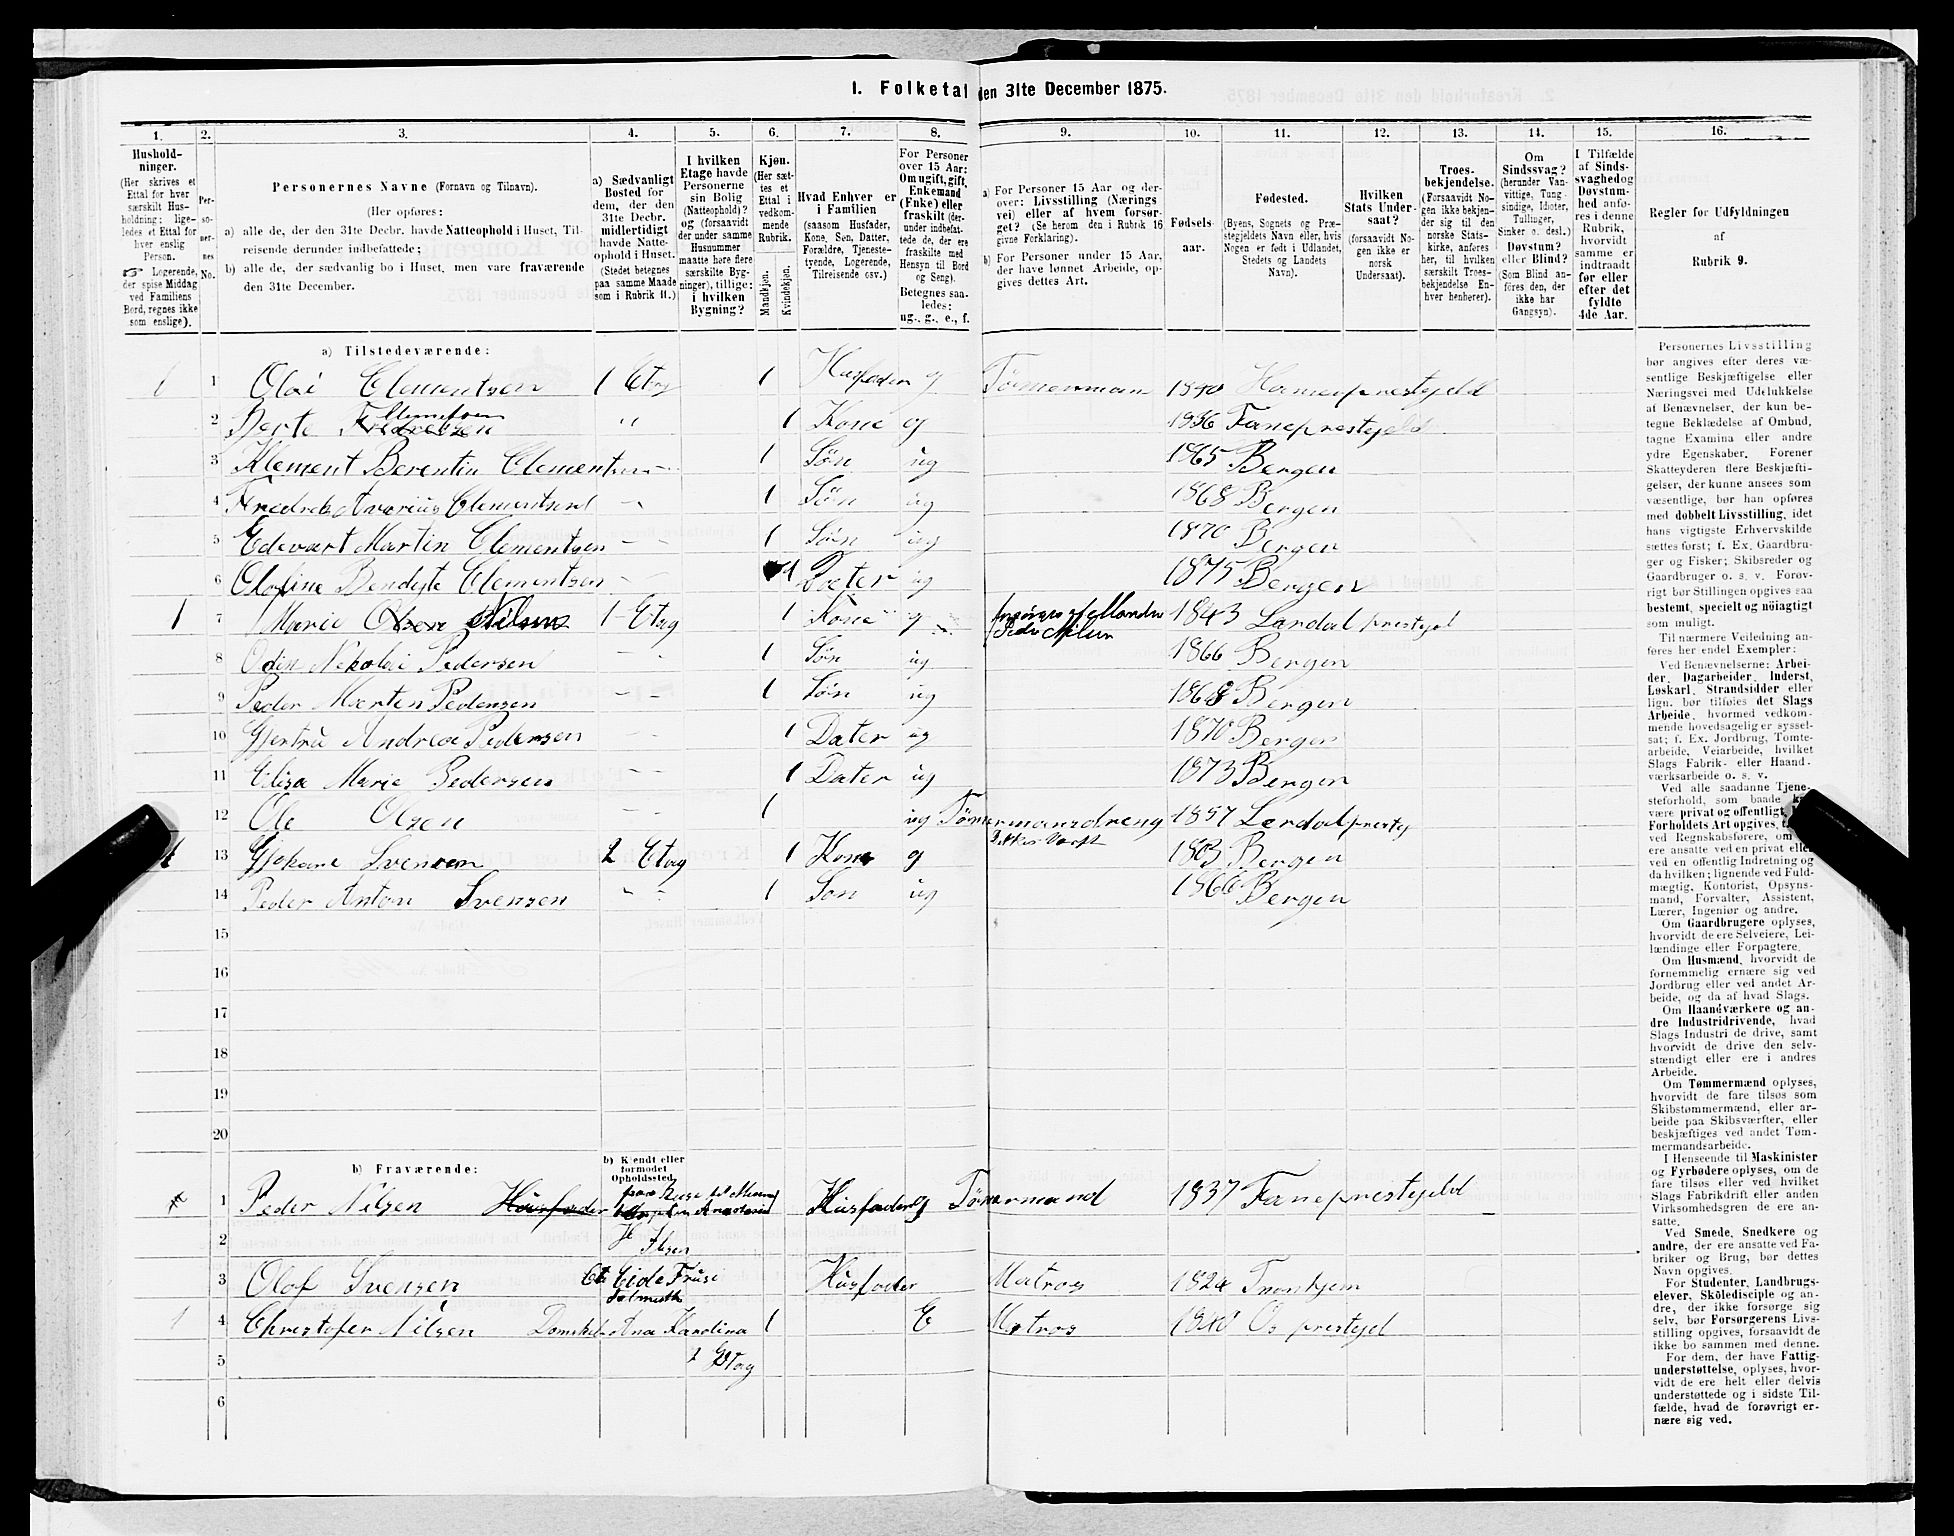 1. Folketal den 31te December 1875.
1. 2. 3. 4. 5. 6. 7. 8. 9. 10. 11. 12. 13. 14. 15. 16.
Hushold-
ninger.
(Her skrives et
Ettal for hver
særskilt Hus-
holdning; lige-
ledes et Ettal for
hver enslig
Person.
☞ Logerende,
der spise Middag
ved Familiens
Bord, regnes ikke
som enslige).
Per-
so-
ner-
nes
No.
Personernes Navne (Fornavn og Tilnavn).
(Her opføres:
a) alle de, der den 31te Decbr. havde Natteophold i Huset, Til-
reisende derunder indbefattede;
b) alle de, der sædvanlig bo i Huset, men vare fraværende
den 31te December.
a) Sædvanligt
Bosted for
dem, der den
31te Decbr.
midlertidigt
havde Natte-
ophold i Huset.
(Stedet betegnes
paa samme Maade
som i Rubrik 11.)
I hvilken
Etage havde
Personerne
sin Bolig
(Natteophold)?
og (forsaavidt
der under samme
Husnummer
maatte høre flere
særskilte Byg-
ninger), tillige:
i hvilken
Bygning?
Kjøn.
(Her sæt-
tes et
Ettal i
vedkom-
mende
Rubrik.
Mandkjøn.
Kvindekjøn.
Hvad Enhver er
i Familien
(saasom Husfader,
Kone, Søn, Datter,
Forældre, Tjeneste-
tyende, Logerende,
Tilreisende osv.)
For Personer
over 15 Aar:
Om ugift, gift,
Enkemand
(Enke) eller
fraskilt (der-
under indbefat-
tede de, der ere
fraskilte med
Hensyn til Bord
og Seng).
Betegnes saa-
ledes:
ug., g., e., f.
a) For Personer 15 Aar og der-
over: Livsstilling (Nærings
vei) eller af hvem forsør-
get? (Se herom den i Rubrik 16
givne Forklaring).
b) For Personer under 15 Aar,
der have lønnet Arbeide, op-
gives dettes Art.
Fødsels-
aar.
Fødested.
(Byens, Sognets og Præ-
stegjeldets Navn eller, hvis
Nogen er født i Udlandet,
Stedets og Landets
Navn).
Hvilken
Stats Under-
saat?
(forsaavidt No-
gen ikke er
norsk
Undersaat).
Troes-
bekjendelse.
(Forsaavidt No-
gen ikke bekjen-
der sig til den
norske Stats-
kirke, anføres
her, til hvilken
særskilt Troes-
bekjendelse En-
hver henhører).
Om
Sindssvag?
(herunder Van-
vittige, Tung-
sindige, Idioter,
Tullinger,
Sinker o. desl.)
Døvstum?
eller Blind?
(Som Blind an-
føres den, der
ikke har
Gangsyn).
I Tilfælde
af Sinds-
svaghed og
Døvstum-
hed anfø-
res i denne
Rubrik,
hvorvidt
samme er
indtraadt
før eller
efter det
fyldte
4de Aar.
Regler for Udfyldningen
af
Rubrik 9.
a) Tilstedeværende:
1 Olai Clementsen 1 Etag 1 Husfader g Tømermann 1840
2 Berte Fredreksen Clemetsen " 1 Kone g 1836 Fane prestejeld
3 Klement Berentin Clementsen 1 Søn ug 1865 Bergen
4 1 Søn ug 1868 Bergen
5 Edevart Martin Clementsen 1 Søn ug 1870 Bergen
6 Olofine Clementsen 1 Dater ug 1875 Bergen
1 7 Marie Olsen Nilsen 1 Etag 1 Kone g 1843 Lardal prestejel
8 Odin Nekolai Pedersen 1 Søn ug 1866 Bergen
9 Peder Marten Pedersen 1 Søn ug 1868 Bergen
10 Andrea Pedersen 1 Dater ug 1870 Bergen
11 Elisa Marie Pedersen 1 Dater ug 1873 Bergen
12 Ole Olsen 1 ug Tømermansdreng 1857 Lerdal prestej
13 Svensen 2 Etag 1 Kone g 1803 Bergen
14 Peder Anton Svensen 1 Son ug 1866 Bergen
15
16
17
18
19
20
b) Fraværende:
b) Kjendt eller
formodet
Opholdssted.
1 Peder Nilsen Husfader Husfader g Tømermand 1837 Fane prestejeld
2
3 Olof Svensen Husfader Matros Tronhjem
1 4 Christofer Nilsen Ana Karolina 1 E Matros 1840 Os prestejel
5 2 Etag
6
Personernes Livsstilling
bør angives efter deres væ-
sentlige Beskjæftigelse eller
Næringsvei med Udelukkelse
af Benævnelser, der kun be-
tegne Beklædelse af Ombud,
tagne Examina eller andre
ydre Egenskaber. Forener
Skatteyderen flere Beskjæfti-
gelser, der kunne ansees som
væsentlige, bør han opføres
med dobbelt Livsstilling, idet
hans vigtigste Erhvervskilde
sættes først; f. Ex. Gaardbru-
ger og Fisker; Skibsreder og
Gaardbruger o. s. v. Forøv-
rigt bør Stillingen opgives saa
bestemt, specielt og nøiagtigt
som muligt.
Til nærmere Veiledning an-
føres her endel Exempler:
Ved Benævnelserne: Arbei-
der, Dagarbeider, Inderst,
Løskarl, Strandsidder eller
lign. bør tilføies det Slags
Arbeide, hvormed vedkom-
mende hovedsagelig er syssel-
sat; f. Ex. Jordbrug, Tomte-
arbeide, Veiarbeide, hvilket
Slags Fabrik- eller Haand-
værksarbeide o. s. v.
Ved alle saadanne Tjene-
steforhold, som baade
være privat og offentligt,
Forholdets Art opgives,
ved Regnskabsførere, om
ere ansatte ved en privat eller
ved en offentlig Indretning og
da hvilken; lignende ved Fuld-
mægtig, Kontorist, Opsyns-
mand, Forvalter, Assistent,
Lærer, Ingeniør og andre.
Om Gaardbrugere oplyses,
hvorvidt de ere Selveiere, Lei-
lændinge eller Forpagtere.
Om Husmænd, hvorvidt de
fornemmelig ernære sig ved
Jordbrug eller ved andet Ar-
beide, og da af hvad Slags.
Om Haandværkere og an-
dre Industridrivende, hvad
Slags Industri de drive, samt
hvorvidt de drive den selv-
stændigt eller ere i andres
Arbeide.
Om Tømmermænd oplyses,
hvorvidt de fare tilsøs som
Skibstømmermænd, eller ar-
beide paa Skibsværfter, eller
beskjæftiges ved andet Tøm-
mermandsarbeide.
I Henseende til Maskinister
og Fyrbødere oplyses, om de
fare tilsøs eller ved hvilket
Slags Fabrikdrift eller anden
Virksomhedsgren de ere an-
satte.
Ved Smede, Snedkere og
andre, der ere ansatte ved Fa-
briker og Brug, bør dettes
Navn opgives.
For Studenter, Landbrugs-
elever, Skoledisciple og an-
dre, der ikke forsørge sig
selv, bør Forsørgerens Livs-
stilling opgives, forsaavidt de
ikke bo sammen med denne.
For dem, der have Fattig-
understøttelse, oplyses, hvor-
vidt de ere helt eller delvis
understøttede og i sidste Til-
fælde, hvad de forøvrigt er-
nære sig ved.